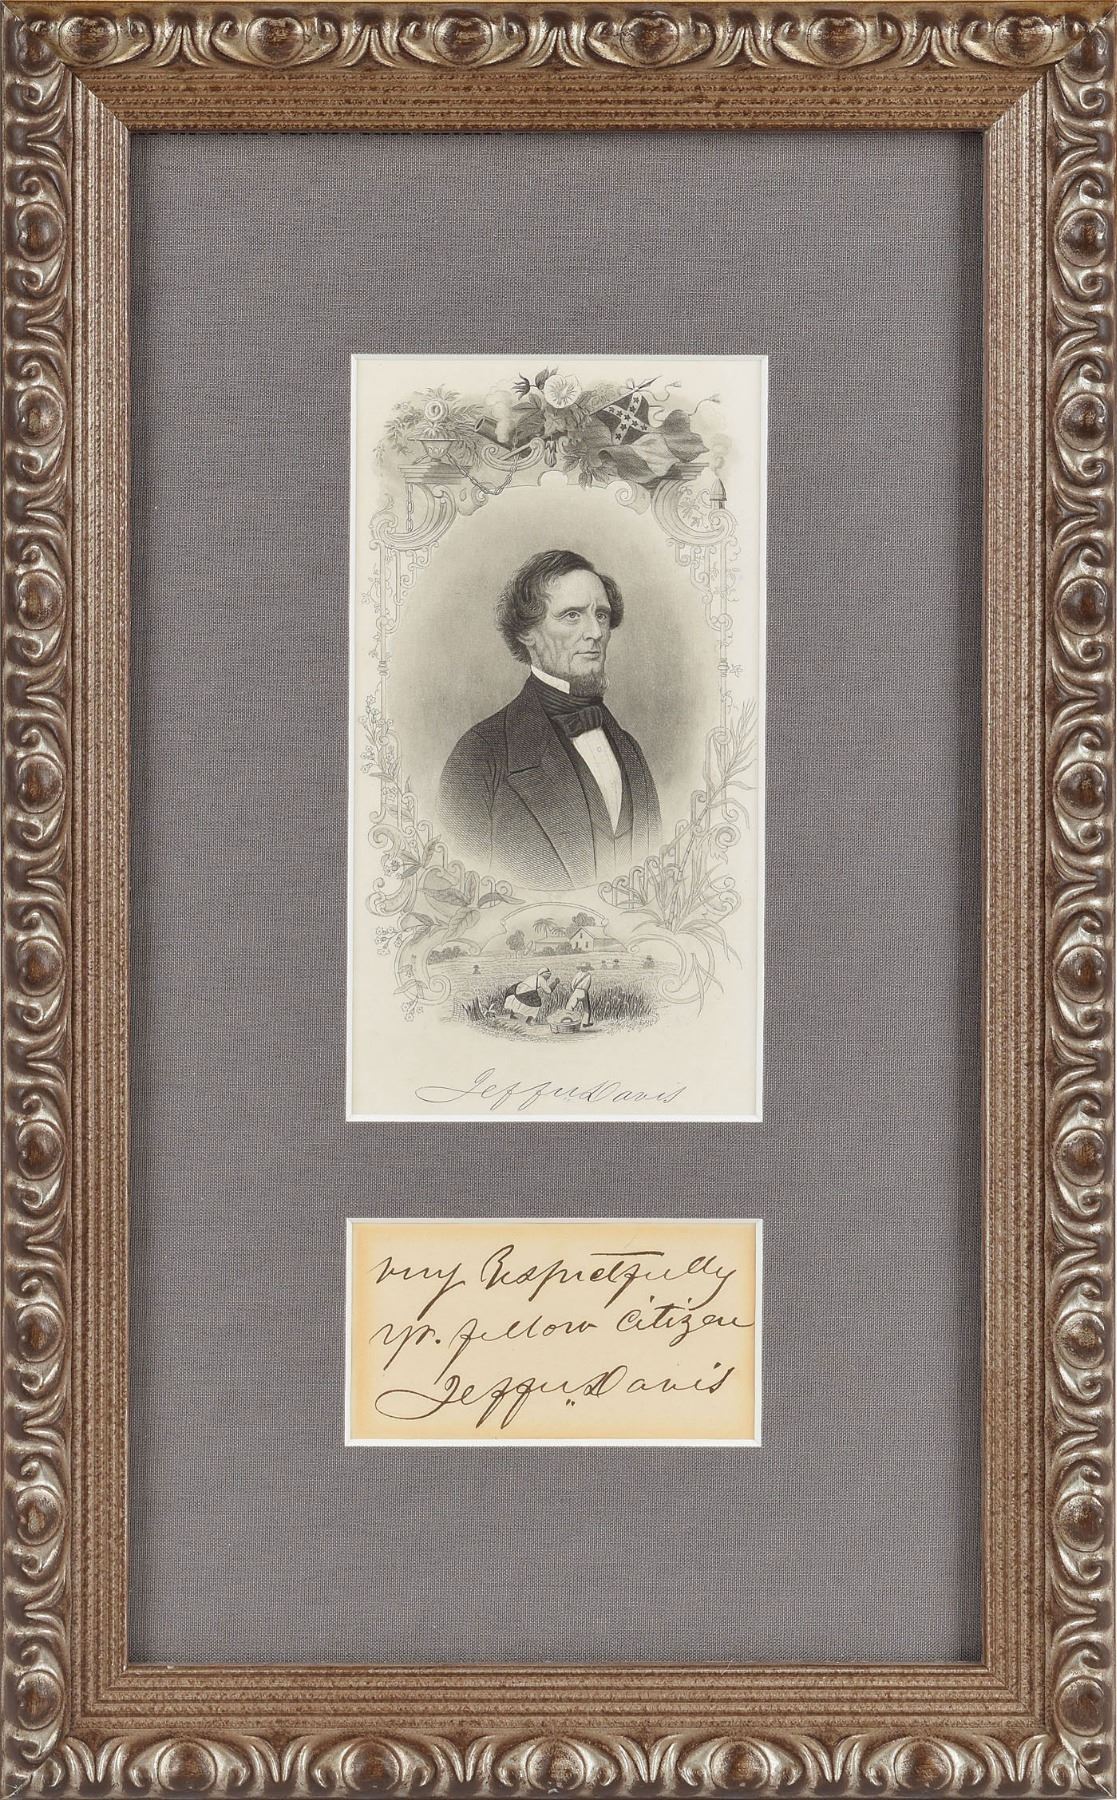 Jeffn: Davis
very Respectfully
yr. fellow Citizen
Jeffn: Davis